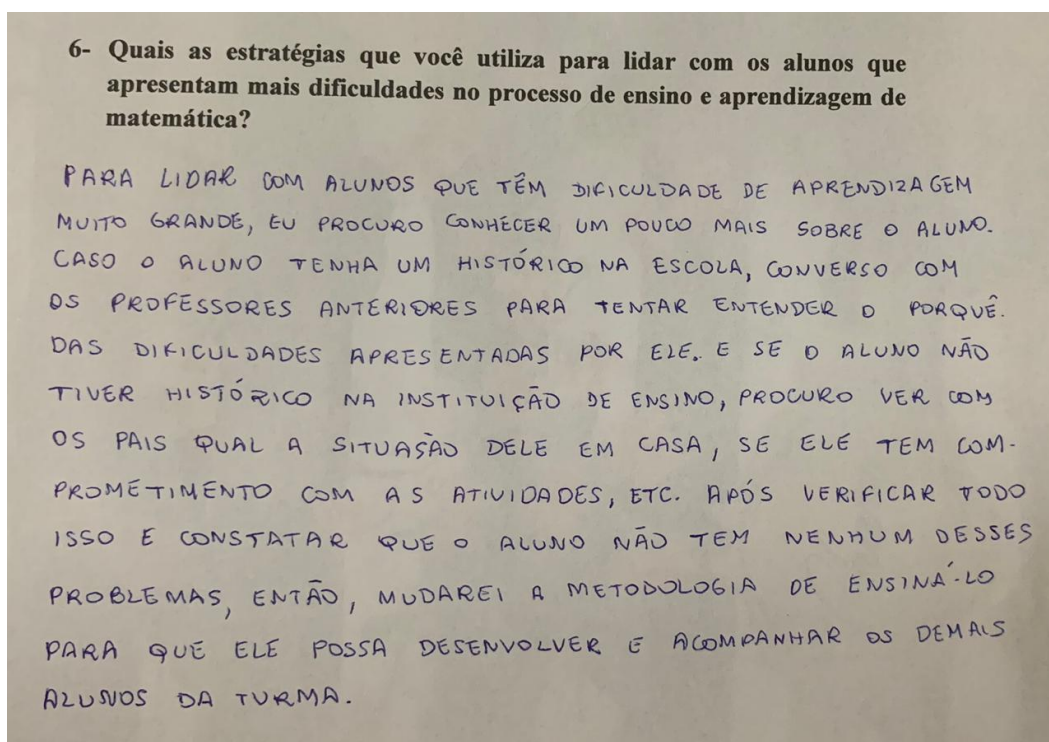 6- Quais as estratégias que você utiliza para lidar com os alunos que
apresentam mais dificuldades no processo de ensino e aprendizagem de
matemática?
PARA LIDAR COM ALUNOS QUE TÊM DIFICULDADE DE APRENDIZAGEM
MUITO GRANDE, EU PROCURO CONHECER UM POUCO MAIS SOBRE O ALUNO.
CASO O ALUNO TENHA UM HISTÓRICO NA ESCOLA, CONVERSO COM
OS PROFESSORES ANTERIORES PARA TENTAR ENTENDER O PORQUÊ.
DAS DIFICULDADES APRESENTADAS POR ELE. E SE O ALUNO NÃO
TIVER HISTÓRICO NA INSTITUIÇÃO DE ENSINO, PROCURO VER COM
OS PAIS QUAL A SITUAÇÃO DELE EM CASA, SE ELE TEM COM-
PROMETIMENTO COM AS ATIVIDADES, ETC. APÓS VERIFICAR TODO
ISSO E CONSTATAR QUE O ALUNO NÃO TEM NENHUM DESSES
PROBLEMAS, ENTÃO, MUDAREI A METODOLOGIA DE ENSINÁ-LO
PARA QUE ELE POSSA DESENVOLVER E ACOMPANHAR OS DEMAIS
ALUNOS DA TURMA.